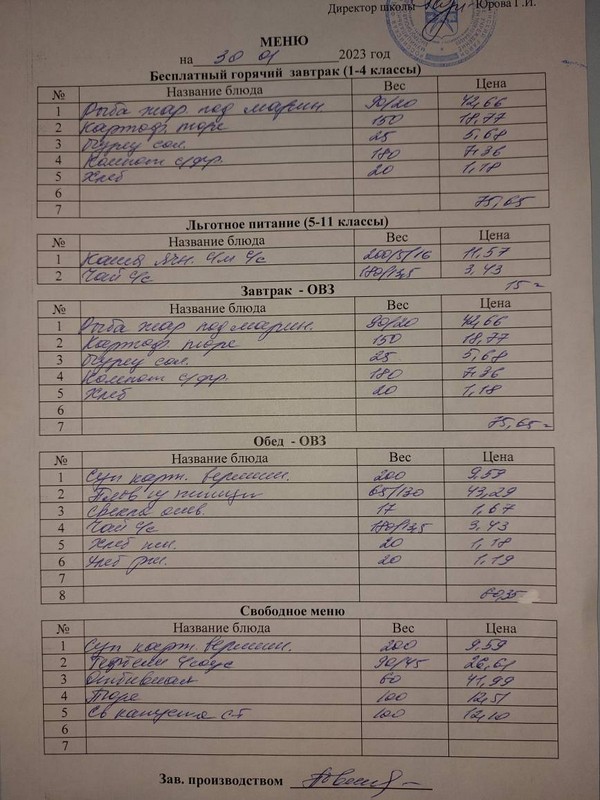 Директор школы Юрова Г.И.
МЕНЮ
на 30 01 2023 год
Бесплатный горячий завтрак (1-4 классы)
№ Название блюда Вес Цена
1 Рыба жар. под марин 90/20 42,66
2 Картоф. пюре 150 18,77
3 Огурец сол. 25 5,68
4 Компот с/фр. 180 7-36
5 Хлеб 20 1,18
6
7 75,65
Льготное питание (5-11 классы)
№ Название блюда Вес Цена
1 Каша ячн. с/м с/с 200/5/16 11,57
2 Чай с/с 180/13,5 3,43
15 =
Завтрак - ОВЗ
№ Название блюда Вес Цена
1 Рыба жар под марин. 90/20 42,66
2 Картоф. пюре 150 18,77
3 Огурец сол. 25 5,68
4 Компот с/фр. 180 7-36
5 Хлеб 20 1,18
6
7 75,65 =
Обед - ОВЗ
№ Название блюда Вес Цена
1 Суп карт. вермиш. 200 9,59
2 Плов из птицы 65/130 43,29
3 Свекла отв. 17 1,67
4 Чай с/с 180/13,5 3,43
5 Хлеб пш. 20 1,18
6 Хлеб рж. 20 1,19
7
8 60,35
Свободное меню
№ Название блюда Вес Цена
1 Суп карт. вермиш. 200 9,59
2 Тефтели с/соус 90/45 26,61
3 Отбивная 60 41,99
4 Пюре 100 12,51
5 Св капуста ст 100 12,10
6
7
Зав. производством